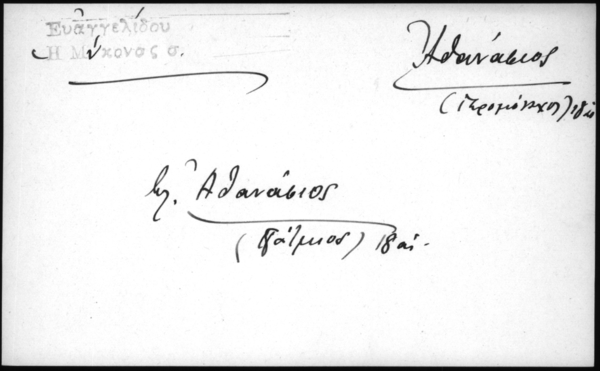 Εὐαγγελίδου
Η Μύκονος σ.
Ἀθανάσιος
(ἱερομόναχος) 18 αἰ
βλ. Ἀθανάσιος
(Πάτμιος) 18 αἰ.